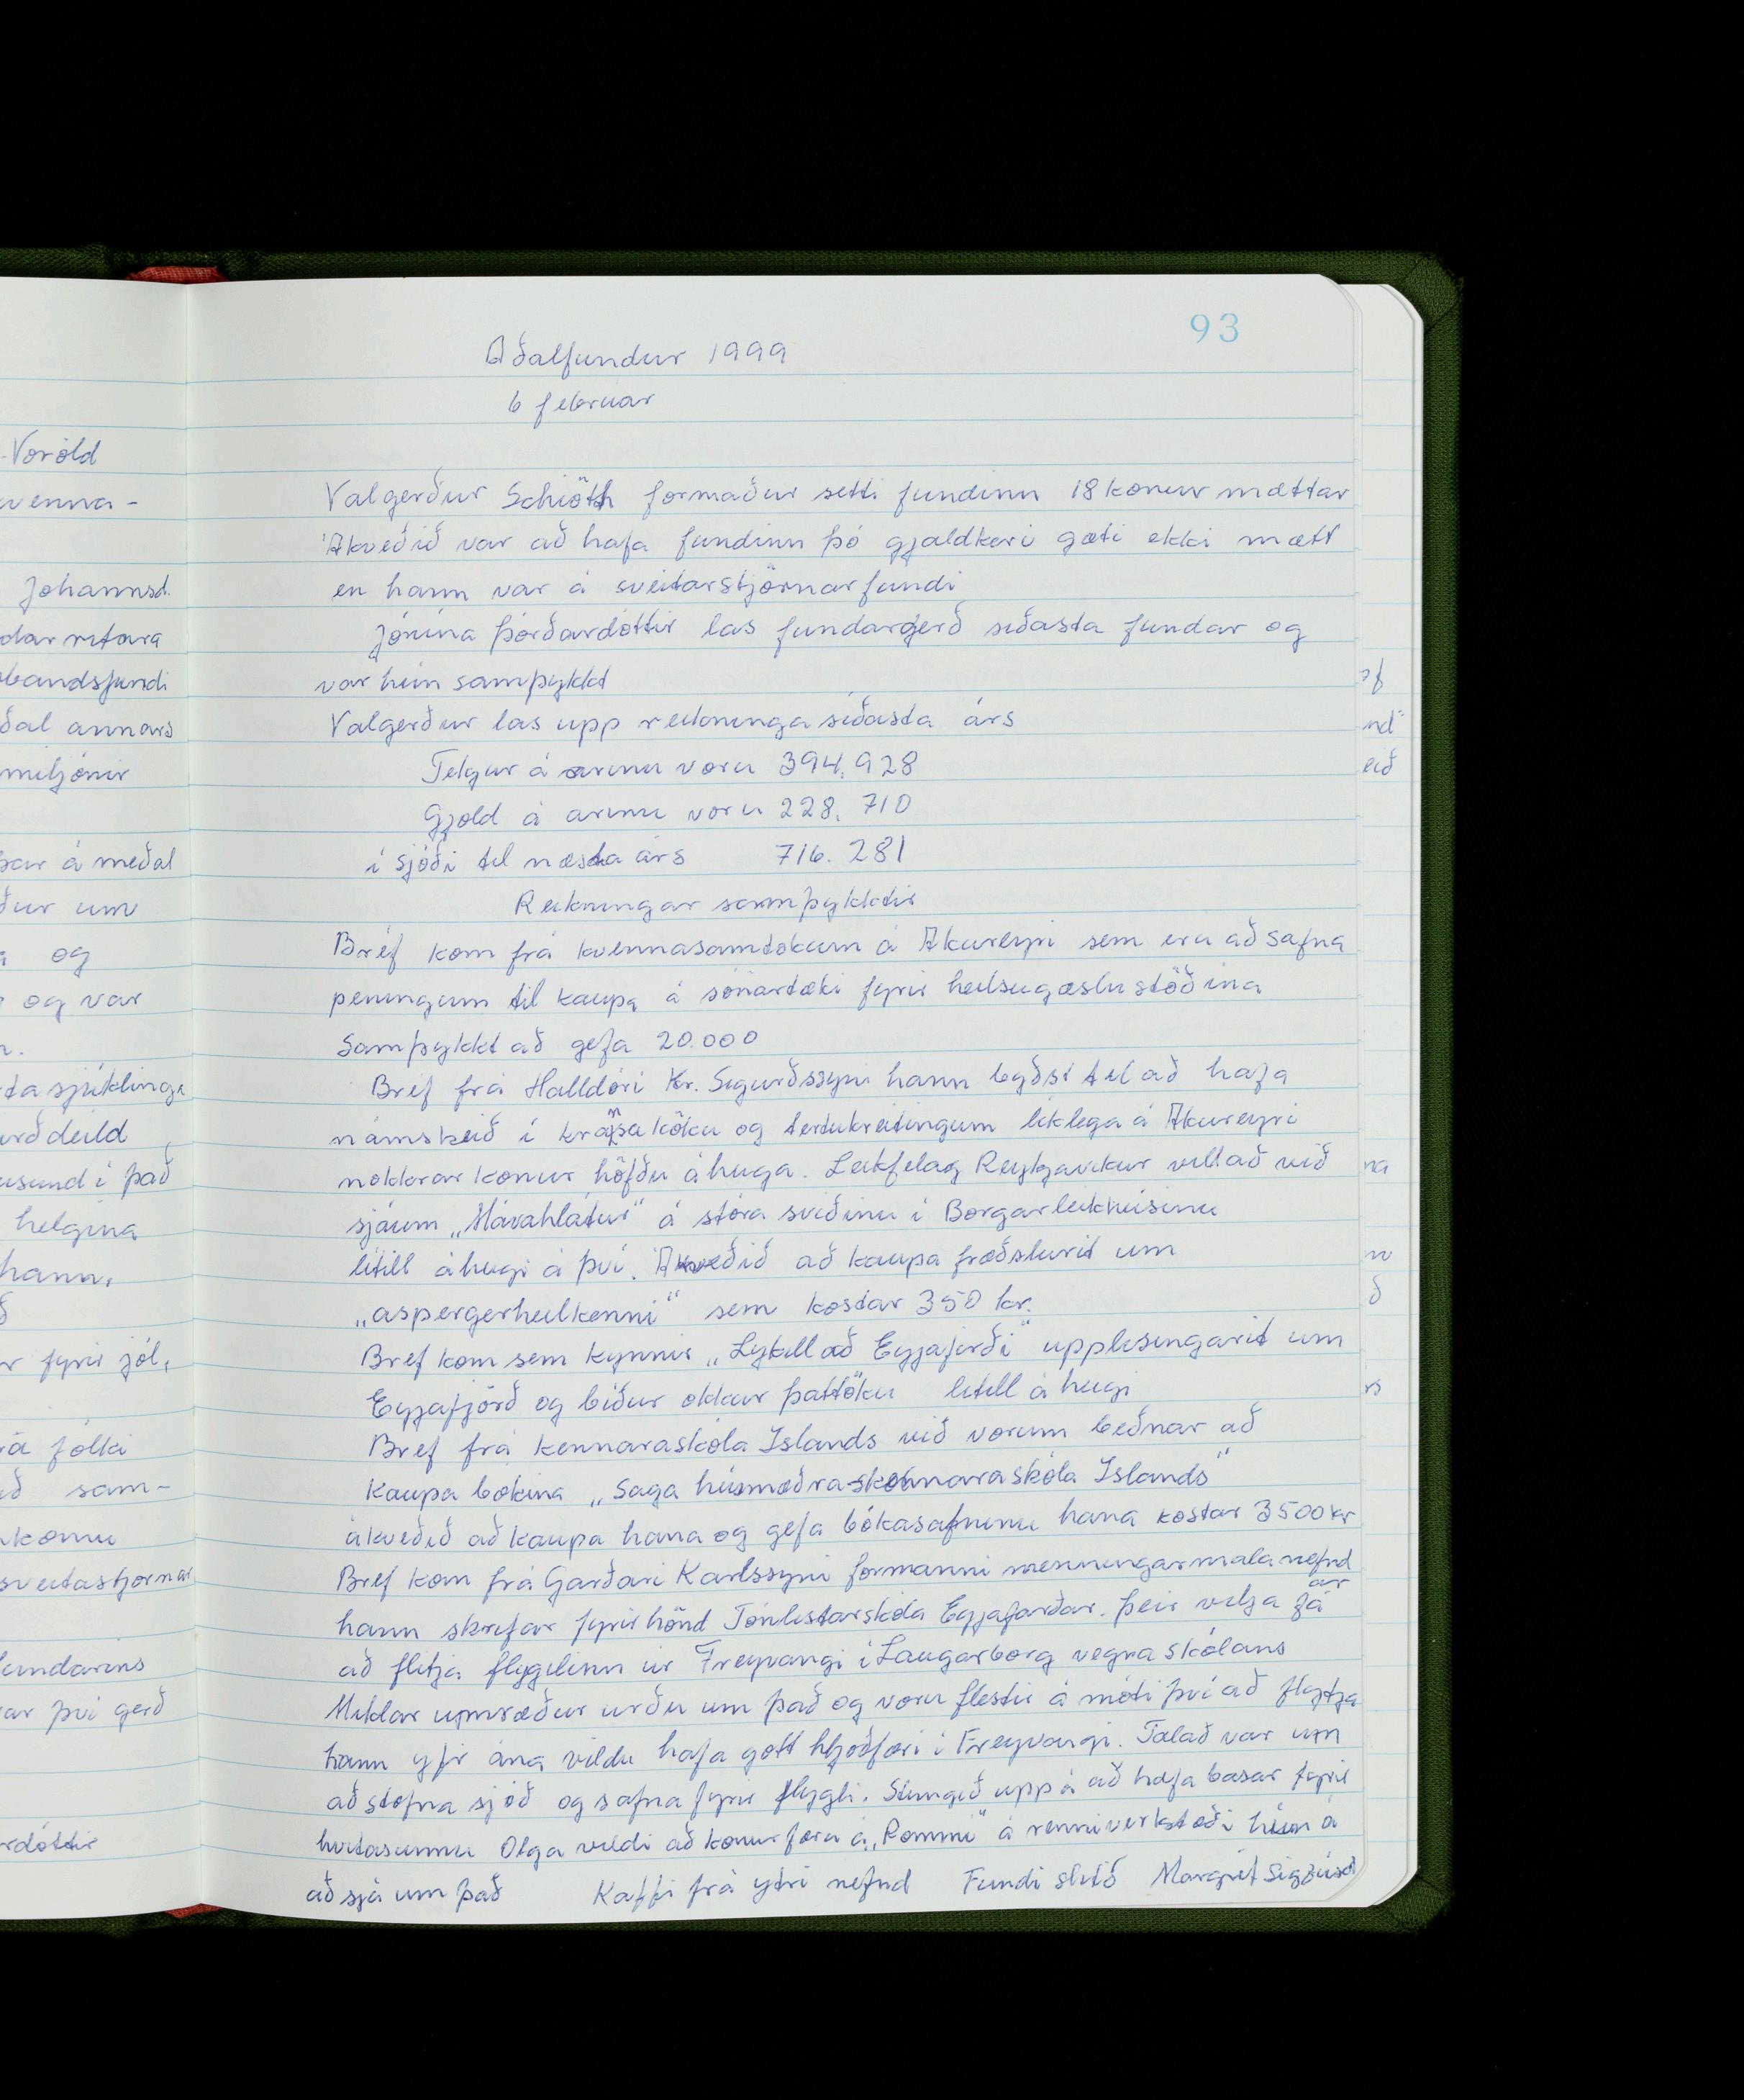 93
Aðalfundur 1999
6 februar
Valgerður Schiöth formaður setti fundinn 18 konur mættar
Ákveðið var að hafa fundinn þó gjaldkeri gæti ekki mætt
en hann var á sveitarstjörnarfundi
Jónína Þórðardóttir las fundargerð siðasta fundar og
var hún samþykkt
Valgerður las upp reikninga síðasta árs
Tekjur á árinu voru 394.928
Gjöld á arinu voru 228.710
i sjóði til næsta árs 716.281
Reikningar samþykktir
Bréf kom frá kvennasamtökum á Akureyri sem eru að safna
peningum til kaupa á sónartæki fyrir heilsugæslustöðina
Samþykkt að gefa 20.000
Bréf frá Halldóri Kr. Sigurðssyni hann byðst til að hafa
námskeið i kransaköku og tertuskreitingum liklega á Akureyri
nokkrar konur höfðu áhuga. Leikfelag Reykjavikur vill að við
sjáum „Hávahlátur" á stóra sviðinu i Borgarleikhúsinu
litill áhugi á því. Ákveðið að kaupa fræðslurit um
„aspergerheilkenni" sem kostar 350 kr.
Bref kom sem kynnir „Lykill að Eyjafirði" upplisingarit um
Eyjafjörð og biður okkur þattöku litill áhugi
Bref frá kennaraskóla Islands við vorum beðnar að
kaupa bokina „Saga húsmæðrakennaraskóla Islands"
ákveðið að kaupa hana og gefa bókasafninu hana kostar 3500 kr
Bref kom frá Garðari Karlssyni formanni menningarmalanefnd
ar
hann skrifar fyrir hönd Tónlistarskóla Eyjafjarðar. þeir vilja fá
að flitja flygilinn úr Freyvangi i Laugarborg vegna skólans
Miklar umræður urðu um það og voru flestir á móti því að flytja
hann yfir ána vildu hafa gott hljóðfæri i Freyvangi. Talað var um
að stofna sjóð og safna fyrir flygli. Stungið uppá að hafa basar fyrir
hvitasunnu Olga vildi að konur færu á „Pommi" á renniverkstæði hún á
að sjá um það Kaffi frá ytri nefnd Fundi slitið Margrét Sigfúsd